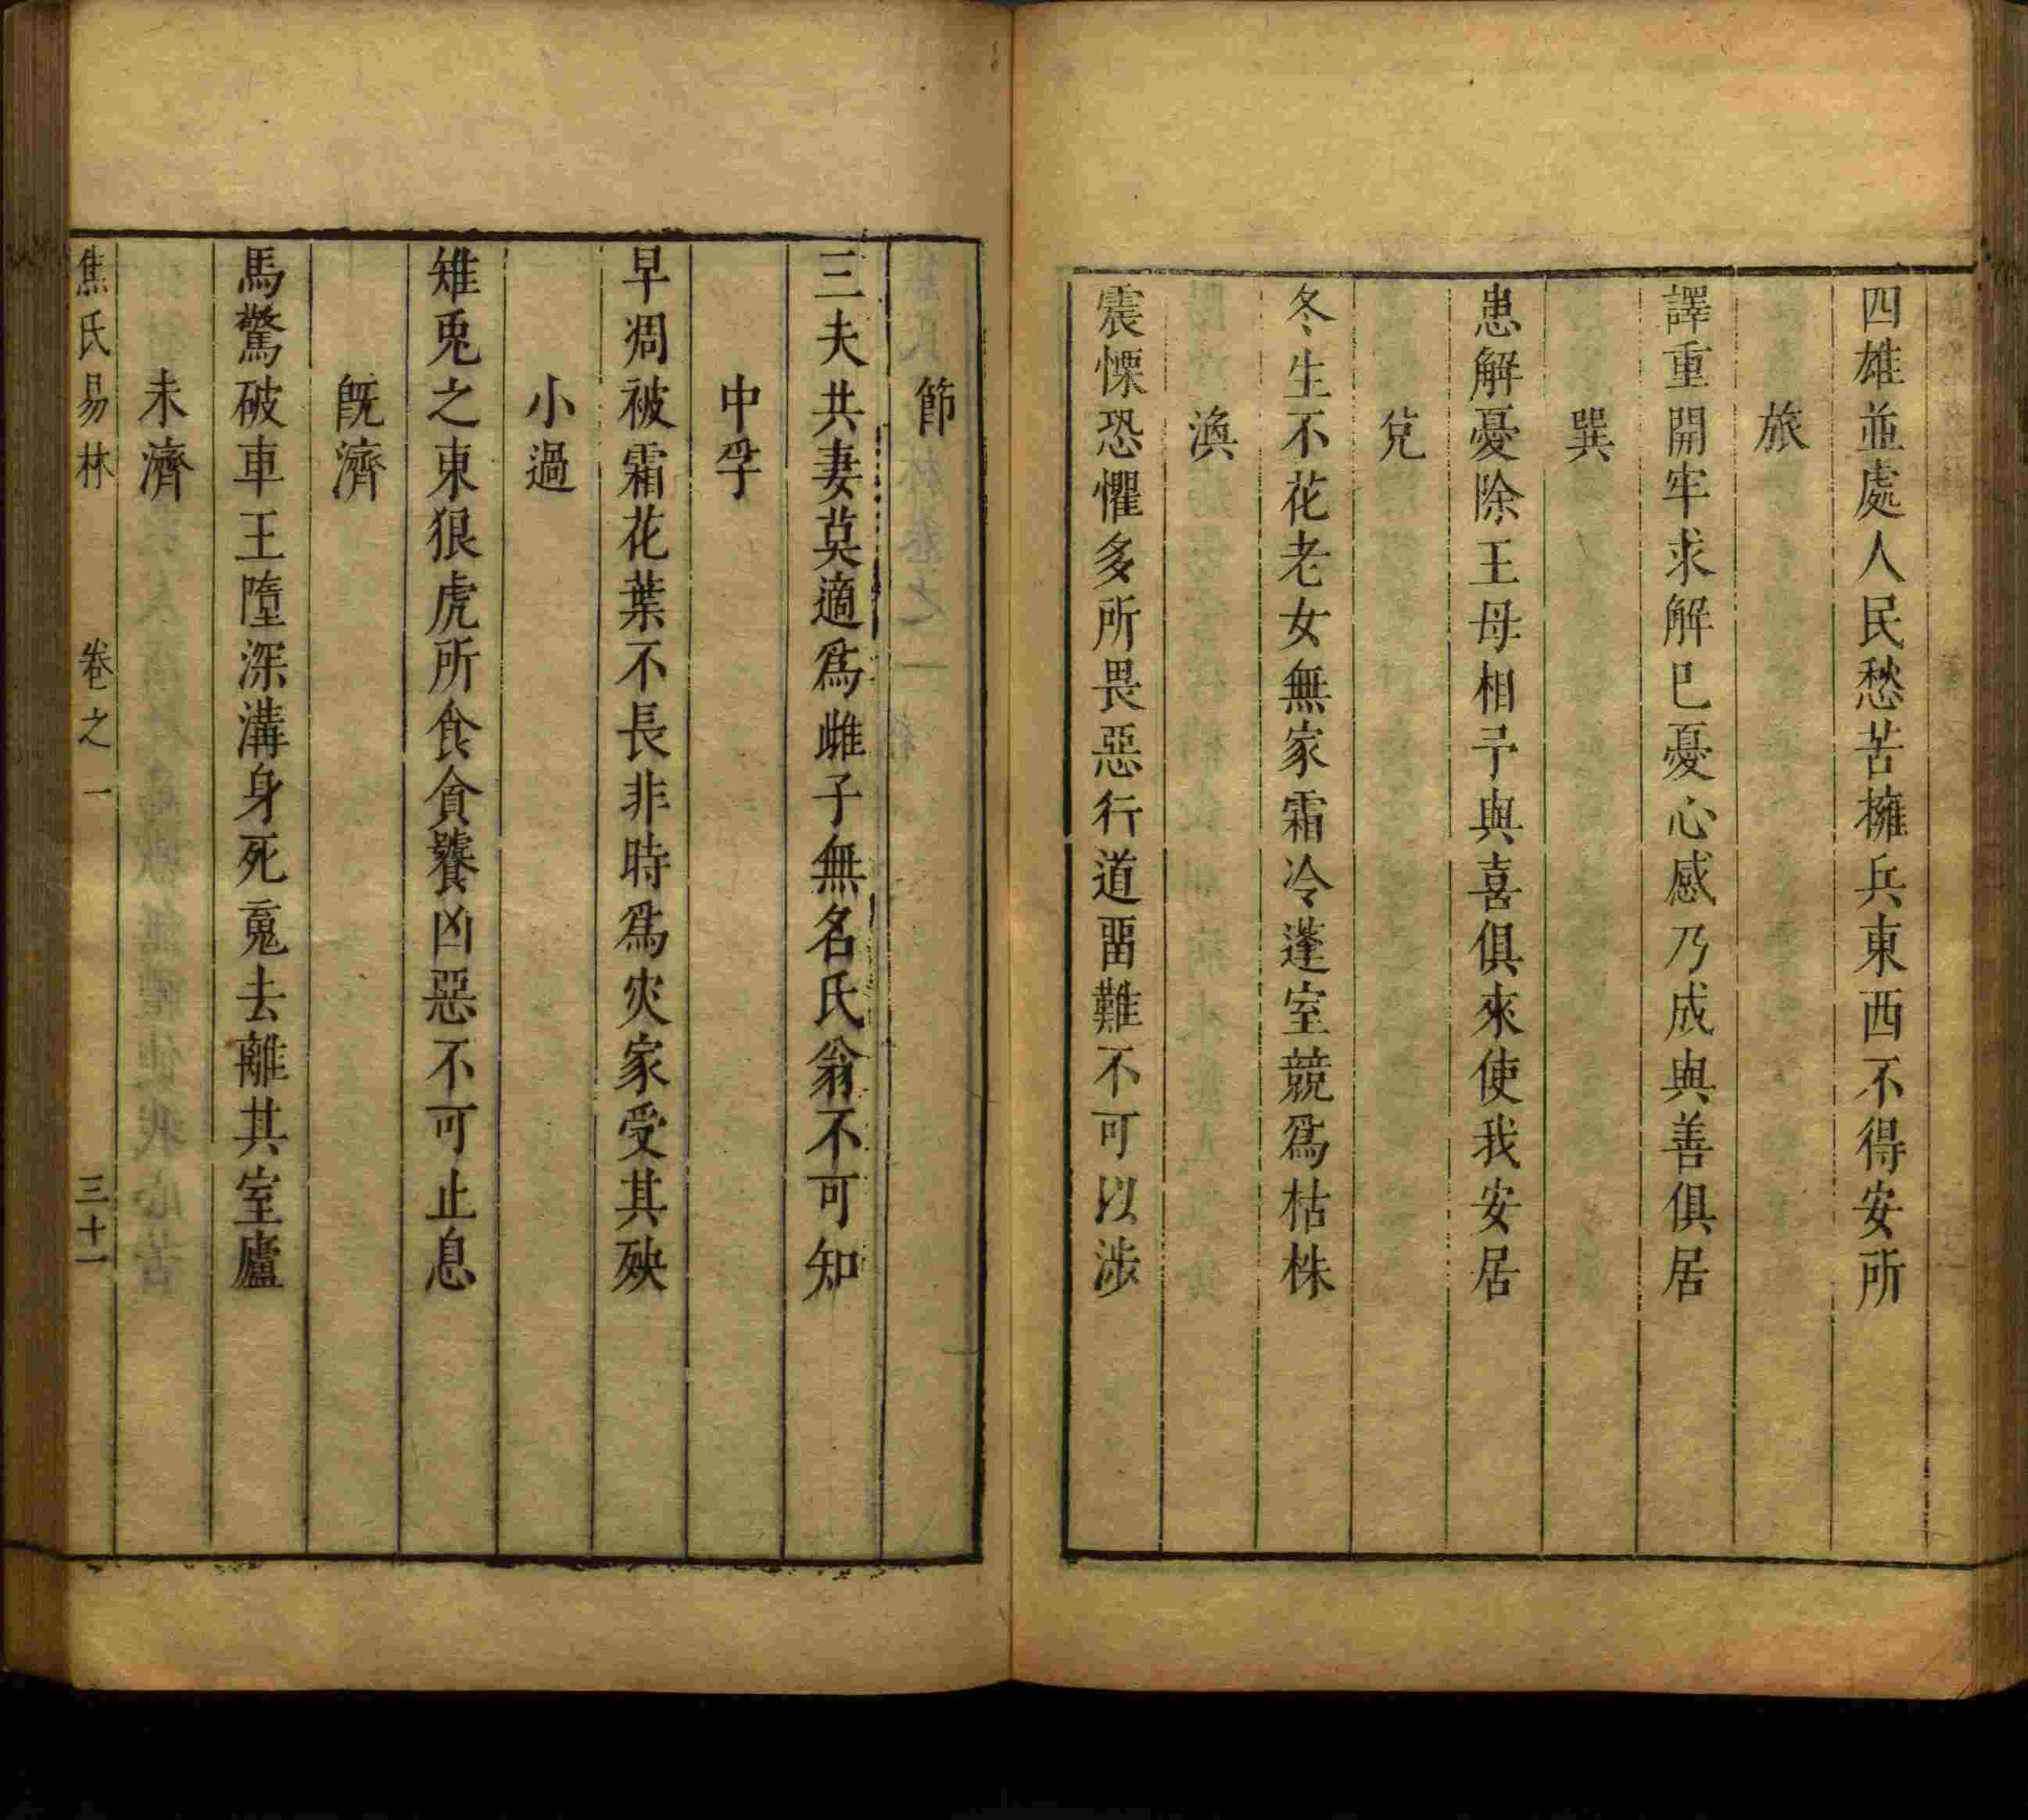 四雄並處人民愁苦擁兵東西不得安所
旅
譯重開牢求解已憂心感乃成與善俱居
巽
患解憂除王母相予與喜俱來使我安居
兌
冬生不花老女無家霜冷蓬室競爲枯株
渙
震慄恐懼多所畏惡行道畱難不可以涉
節
三夫共妻莫適爲雌子無名氏翁不可知
中孚
早凋被霜花葉不長非時爲灾家受其殃
小過
雉兎之東狼虎所食貪饕凶惡不可止息
旣濟
馬驚破車王墮深溝身死䰟去離其室廬
未濟
焦氏易林 卷之一 三十一